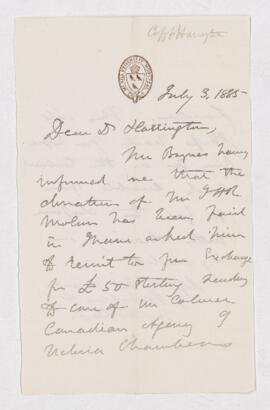 July 3, 1885
Dear Dr Harrington,
Mr Baynes having
informed me that the
donation of Mr J H R
Molson has been paid
in I have asked him
to remit to you Exchange
for £50 sterling sending
to care of Mr Colmer
Canadian Agency 9
Victoria Chambers